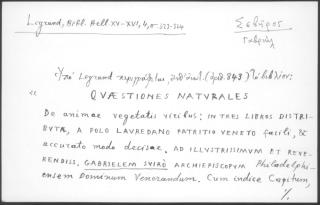 Legrand, Bibl. Hell. XV-XVI, 4, σ. 323-324
Σεβῆρος
Γαβριήλ
Ὑπὸ Legrand περιγράφεται, (ἀρ. 843) τὸ βιβλίον:
« QVÆSTIONES NATVRALES
De animae vegetatis viribus: IN TRES LIBROS DISTRI-
BVTÆ, A POLO LAVREDANO PATRITIO VENETO facili, &
accurato modo decisae. AD ILLVSTRISSIMVM ET REVE-
RENDISS. GABRIELEM SVIRÒ ARCHIEPISCOPVM Philadelphi-
ensem Dominum Venerandum. Cum indice Capitum,
·/.